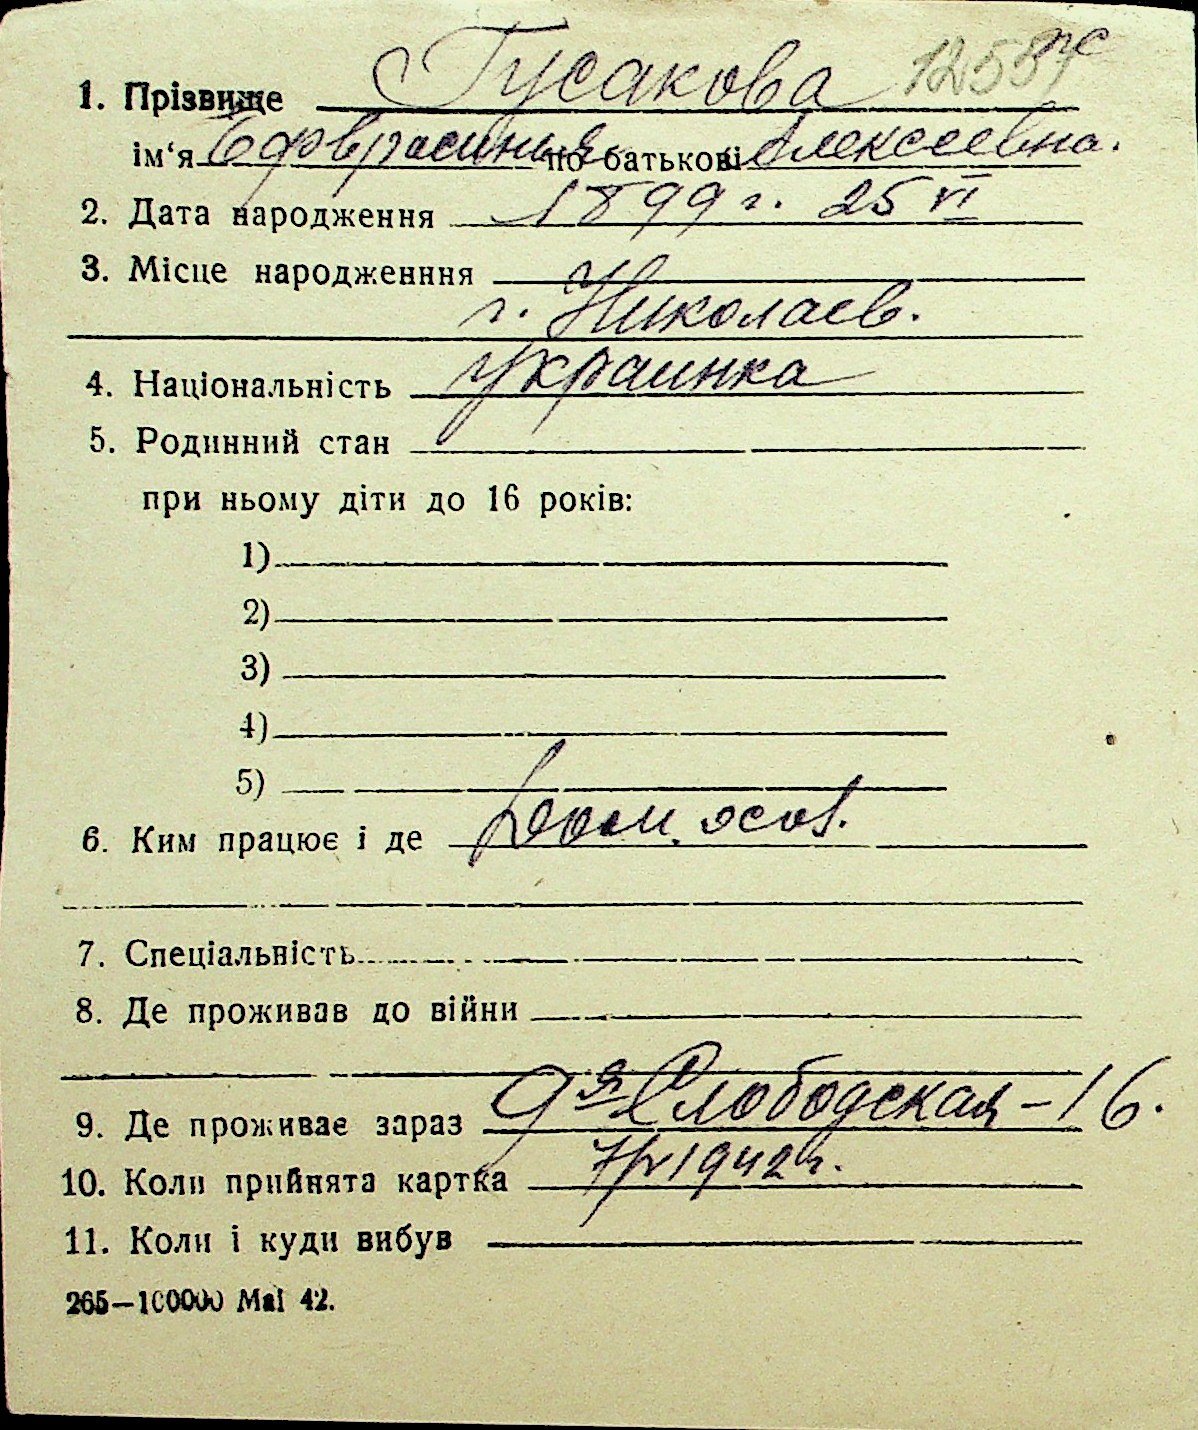 1. Прізвище Гусакова 12557 пс
ім‘я Ефвросиния по батькові Алексеевна.
2. Дата народження 1899 г. 25 VI
3. Місце народженння
г. Николаев.
4. Національність Украинка
5. Родинний стан
при ньому діти до 16 років:
1)
2)
3)
4)
5)
6. Ким працює і де Дом.
7. Спеціальність
8. Де проживав до війни
9. Де проживає зараз 9я Слободская – 16.
10. Коли прийнята картка 1942 г.
11. Коли і куди вибув
265–100000 Маі 42.